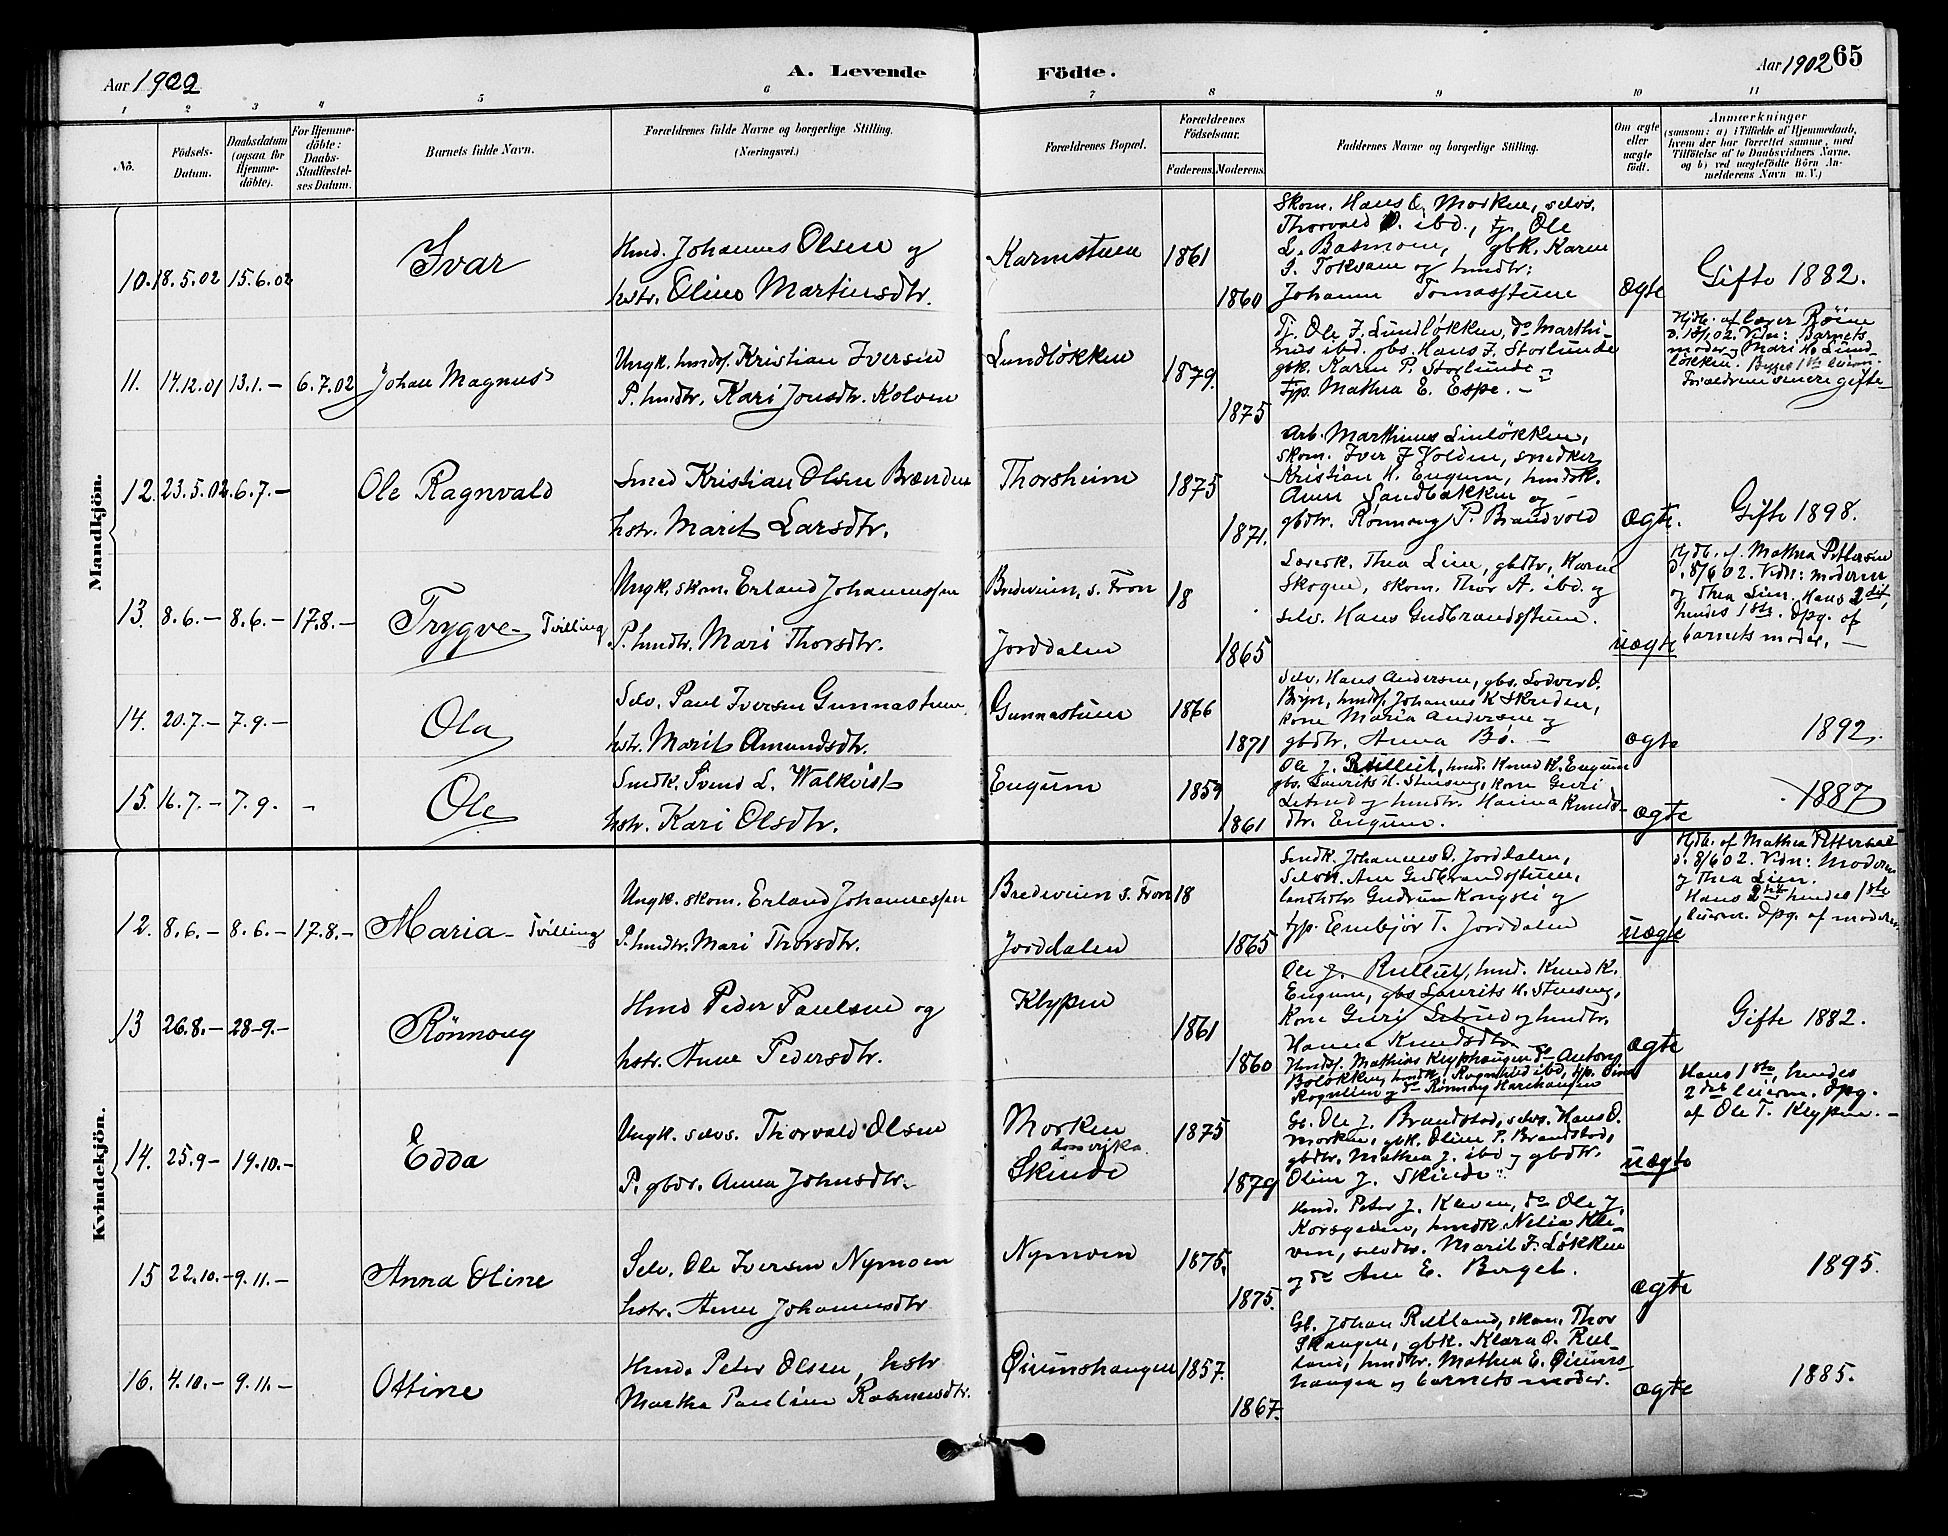 Aar 1902
A. Levende
Fødte.
Aar 1902
65
1
2
3
4
5
6
7
8
9
10
11
No.
Fødsels-
Datum.
Daabsdatum
(ogsaa for
Hjemme-
døbte).
For Hjemme-
døbte:
Daabs-
Stadfæstel-
ses Datum.
Barnets fulde Navn.
Forældrenes fulde Navne og borgerlige Stilling.
(Næringsvei.)
Forældrenes Bopæl.
Forældrenes
Fødselsaar.
Faderens.
Moderens.
Faddernes Navne og borgerlige Stilling.
Om ægte
eller
uægte
født.
Anmærkninger
(saasom: a) i Tilfælde af Hjemmedaab,
hvem der har forrettet samme, med
Tilføielse af to Daabsvidners Navne,
og b) ved uægtefødte Børn An-
melderens Navn m. V.)
Mandkjön.
10.
18.5.02
15.6.02
Ivar
Hmd. Johannes Olsen og
hstr. Oline Martinsdtr.
Karmstuen
1861
1860
Skom. Hans O. Morken, selvs.
Thorvald O. ibd., tj. Ole
gbk. Karen
og hmdtr.
Johanne Tomasstuen
ægte
Gifte 1882.
11.
14.12.01
13.1.-
6.7.02
Johan Magnus
Ungk. hmdsf. Kristian Iversen
P. hmdtr. Kari Jonsdtr. Kolven
Lundløkken
1879.
1875
Tj. Ole I. Lundløkken, do Marthi-
nus ibd. gbs. Hans J. Storlunde
gbk. Karen P. Storlunde
tjp. Mathea E. Espe. -
Hjdb. af lærer Røine
Vidn: Barnets
moder og Mari H. Lund-
løkken.
Forældrene senere gifte -
12.
23.5.02
6.7.-
Ole Ragnvald
Smed Kristian Olsen Brænden
hstr. Marit Larsdtr.
Thorsheim
1875
1871.
Arb. Marthinus Linløkken,
skom. Iver J Volden, snedker
Kristian H. Engum, hmdsk.
Anne Sandbakken og -
gbdtr. Rønnoug P. Brandvold
ægte.
Gifte 1898.
13.
8.6.-
8.6.-
17.8.-
Trygve - Tvilling
Ungk. skom. Erland Johannessen
P. hmdtr. Mari Thorsdtr.
Bredevein, s. Fron
Jorddalen
18
1865
Lærerk. Thea Lien, gbdtr. Karen
Skogen, skom. Thor A. ibd. og
selv. Hans Gudbrandsstuen.
uægte
Hjdb. af Mathea Pettersen
d. 8/6 02. Vidn: moderen
og Thea Lien. Hans 2det,
hendes 1ste. Opg. af
barnets moder. -
14.
20.7.-
7.9.-
Ola
Selv. Paul Iversen Gunnastuen,
hstr. Marit Amundsdtr.
Gunnastuen
1866
1871
Selv. Hans Andersen, gbs. Lodver O.
hmdsf. Johannes K Skriden,
kone Maria Andersen og
gbdtr. Anna Bø. -
ægte
1892.
15.
16.7.-
7.9.
-
Ole
Smdk. Svend L. Walkvist
hstr. Kari Olsdtr.
Engum
1859
1861
Ole J. Rullut, hmd. Knud K. Engum
gbs. Laurits H. Stenseng, kone Guri
Letrud og hmdtr. Hanna Knuds-
dtr. Engum.
ægte
1887
Kvindekjön.
12.
8.6.-
8.6.-
17.8.-
Maria - Tvilling
Ungk. skom. Erland Johannessen
P. hmdtr. Mari Thorsdtr.
Bredevein s. Fron
Jorddalen
18
1865
Smdk. Johannes O. Jorddalen,
Selvk. Ane Gudbrandsstuen,
landhdtr. Gudrun Kongsli og
tjp. Embjør T. Jorddalen
uægte
Hjdb. af Mathea Pettersen
d. 8/6 02. Vidn: Moderen
og Thea Lien.
Hans 2det hendes 1ste
leierm. Opg. af moderen
13
26.8.-
28.9.-
Rønnoug
Hmd Peder Paulsen og
hstr. Anne Pedersdtr.
Klypen
1861
1860
Ole J. Rullut, hmd. Knud K.
Engum, gbs Laurits H. Stenseng,
Kone Guri Letrud og hmdtr.
Hanna Knudsdtr.
Hmdsf. Mathias Klyphaugen do Anton
Boløkken, hmdk. Ragnhild ibd, tjp.
og do Rønnoug Harehaugen
ægte
Gifte 1882.
14.
25.9-
19.10.-
Edda
Ungk. selvs. Thorvald Olsen
P. gbdr. Anna Johnsdtr.
Morken
Skinde
1875
1879
Gl. Ole J. Brandstad, selvs. Hans O.
Morken, gbk. Oline P. Brandstad,
gbdtr. Mathea J. ibd og gbdtr.
Oline J. Skinde
uægte
Hans 1ste, hendes
2det leierm. Opg.
af Ole T. Klypen. -
15
22.10.-
9.11.-
Anna Oline
Selv. Ole Iversen Nymoen
hstr. Anne Johannesdtr
Nymoen
1875.
1875.
Hmd. Peter J. Kleven, do Ole J.
Korsgaden, hmdk. Nilia Kle-
ven, selvdtr. Marit I. Løkken
og do Ane E. Berget.
ægte
1895.
16.
4.10.-
9.11.-
Ottine
Hmd. Peter Olsen, hstr
Martha Pauline Rasmusdtr.
Øiumshaugen
1857.
1867.
Gl. Johan Rulland, skom. Thor
Skaugen, gbk. Klara O. Rul-
land, hmdtr. Mathea E. Øiums-
haugen og barnets moder.
ægte
1885.